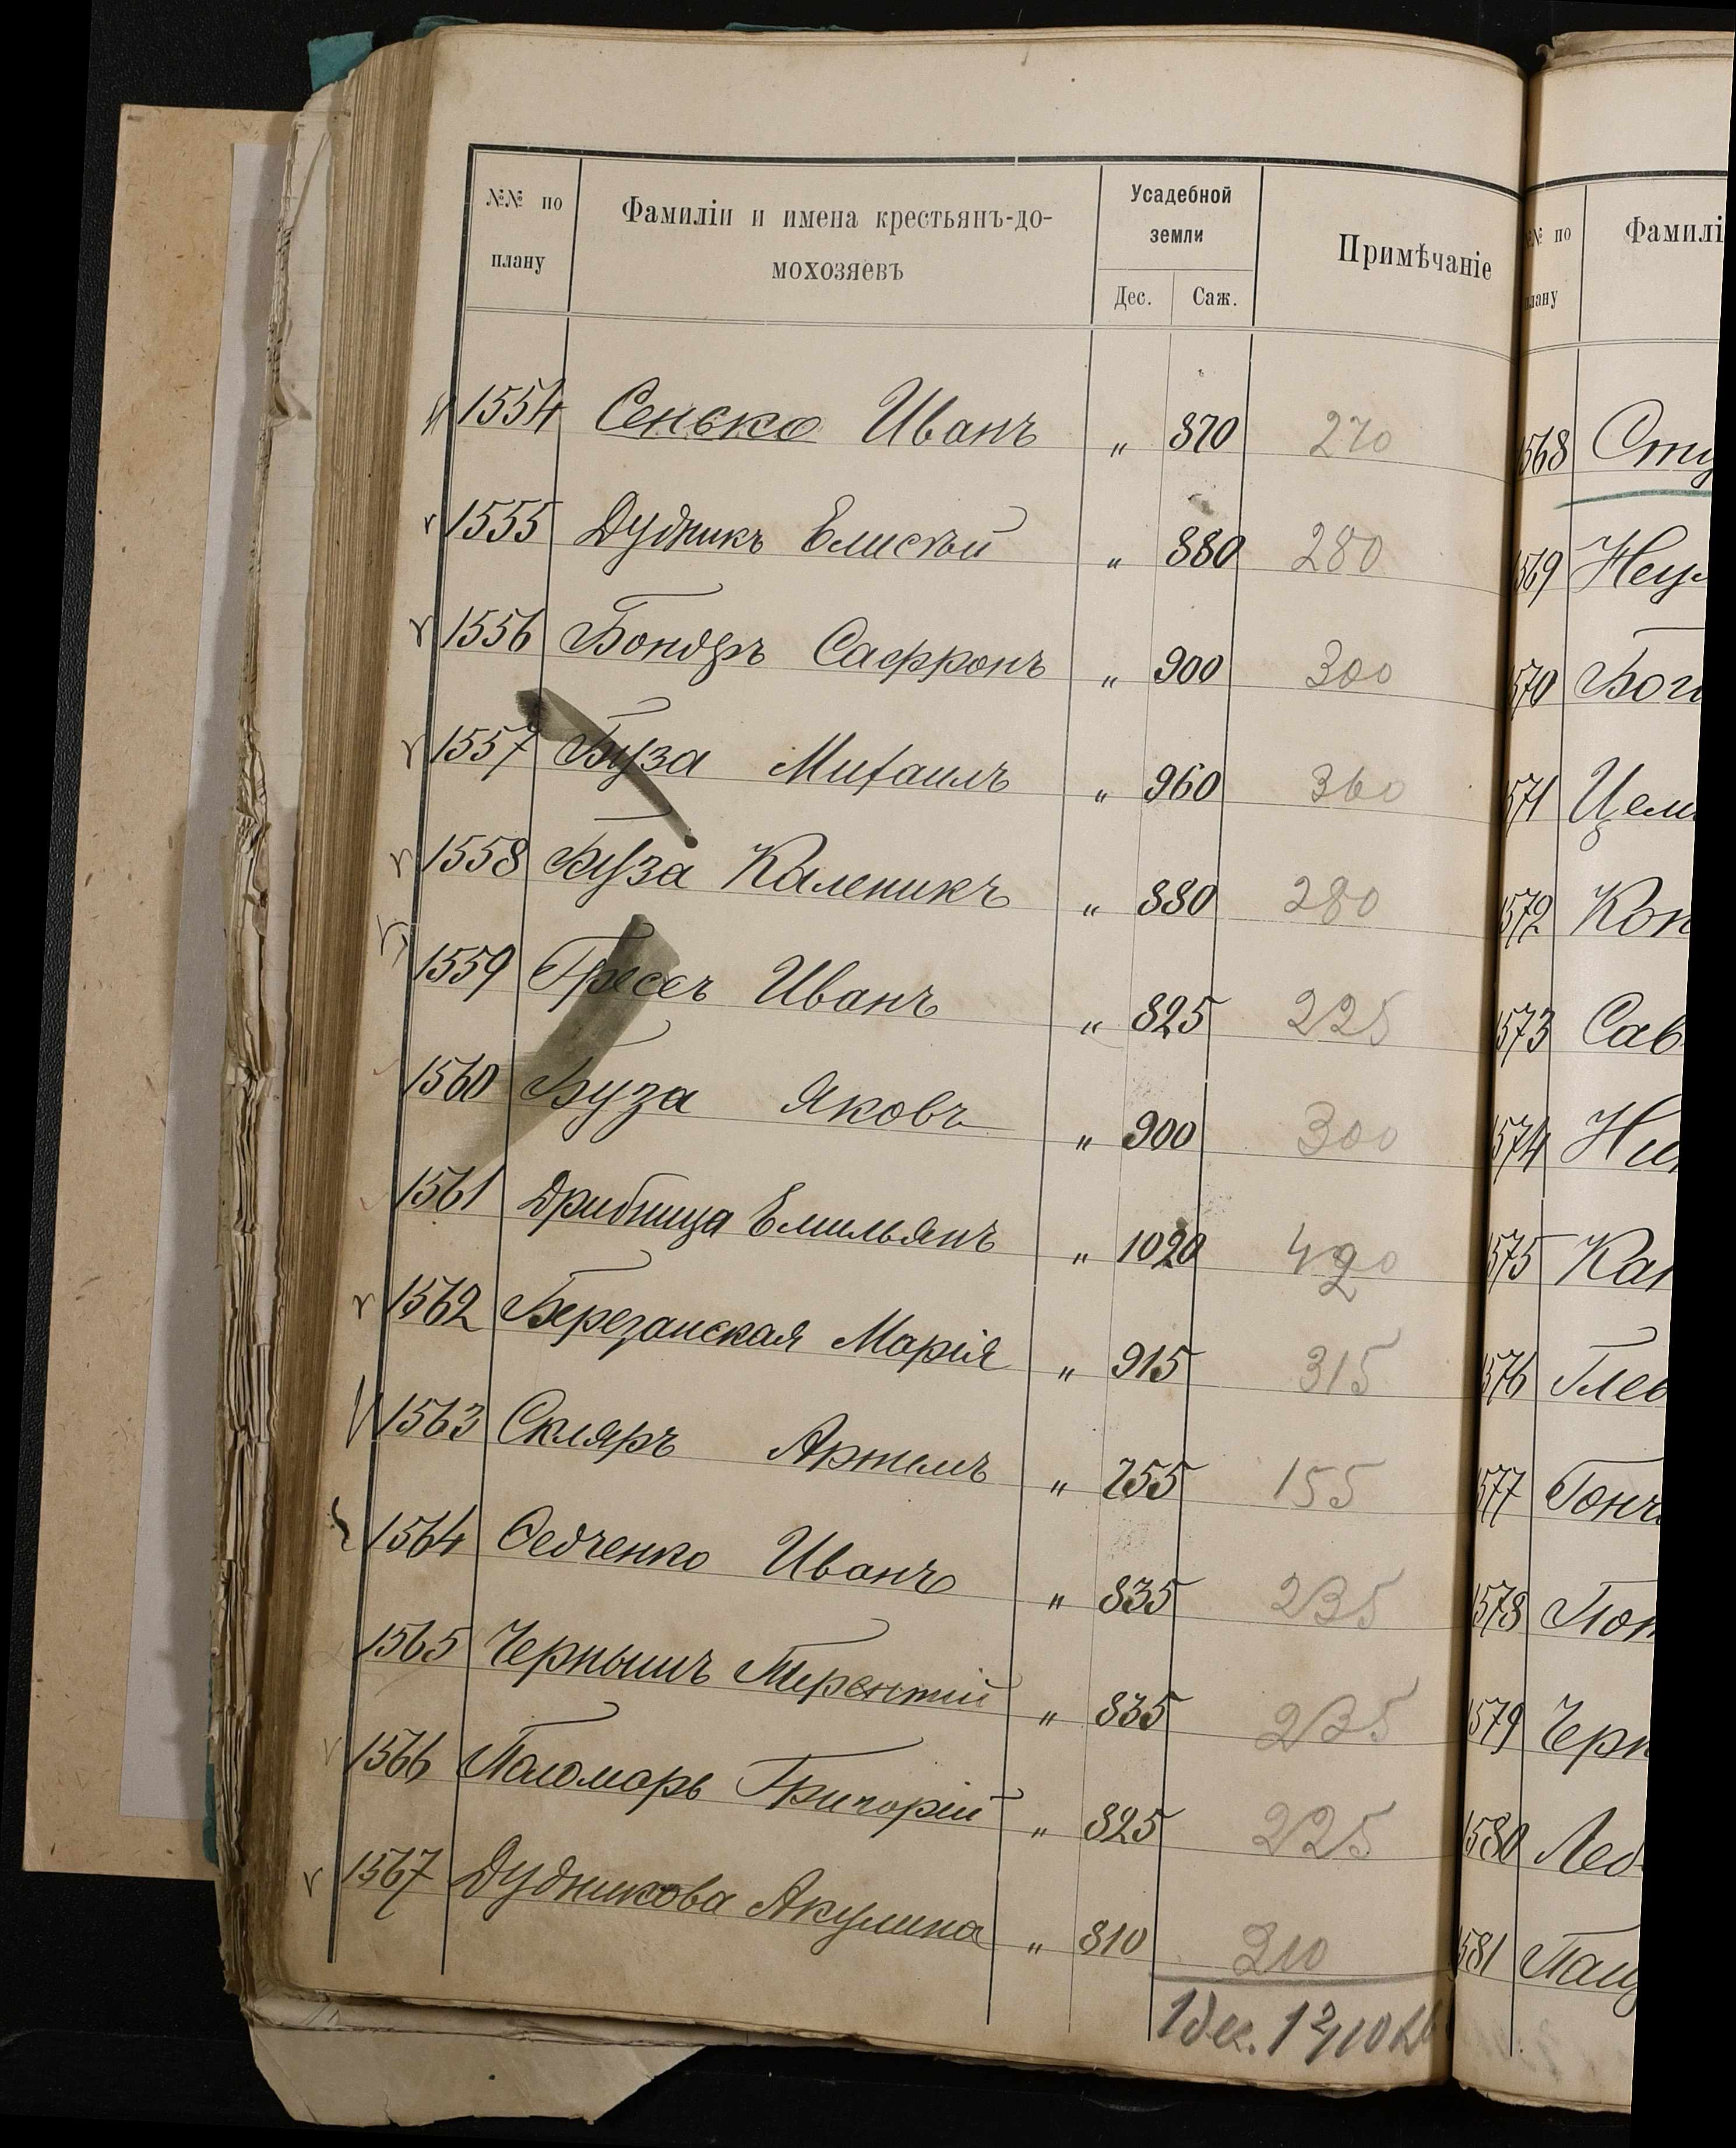 №№ по плану
Фамиліи и имена крестьянъ-домохозяевъ
Усадебной земли
Дес. Саж.
Примѣчаніе
1554 Сенько Иванъ „ 870 270
1555 Дудникъ Елисѣй „ 880 280
1556 Бондрь Сафронъ „ 900 300
1557 Буза Михаилъ „ 960 360
1558 Буза Каленикъ „ 880 280
1559 Иванъ „ 825 225
1560 Буза Яковъ „ 900 300
1561 Дрибница Емильянъ „ 1020 420
1562 Березанская Марія „ 915 315
1563 Скляръ Артемъ „ 755 155
1564 Ѳедченко Иванъ „ 835 235
1565 Чернышъ Терентій „ 835 235
1566 Паломарь Григорій „ 825 225
1567 Дудникова Акулина „ 810 210
1 дес.
№№ по плану
Фамилі
1568 Сту
1569 Неу
1570 Бог
1571 Цем
1572 Кон
1573 Сав
1574 Ни
1575 Ка
1576 Глев
1577 Гонч
1578 Пот
1579 Черн
1580 Лед
1581 Пащ